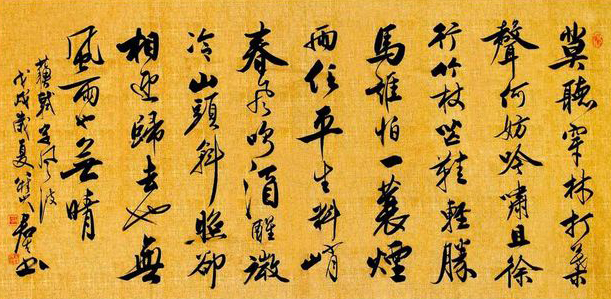 莫聽穿林打葉
聲何妨吟嘯且徐
行竹杖芒鞋輕勝
馬誰怕一蓑煙
雨任平生料峭
春風吹酒醒微
冷山頭斜照卻
相迎歸去也無
風雨也無晴
蘇軾定風波
戊戌歲夏書